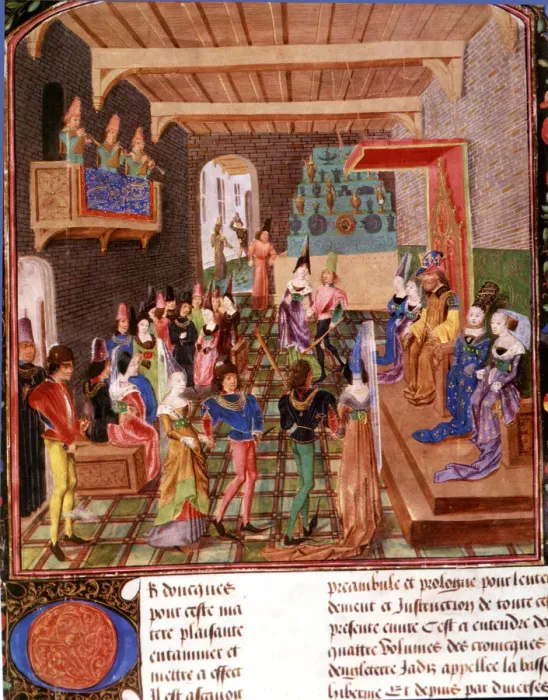 OR doncques
pour ceste ma
tere plaisante
entammer et
mettre a effect
Il est ascavoir
preambule et prologue pour lente
dement et Instruction de toute ce
presente euure Cest a entendre de
quattre volumes des cronicques
dengleterre Jadiz appellee la basse
hibernie Et depuis par diuerses